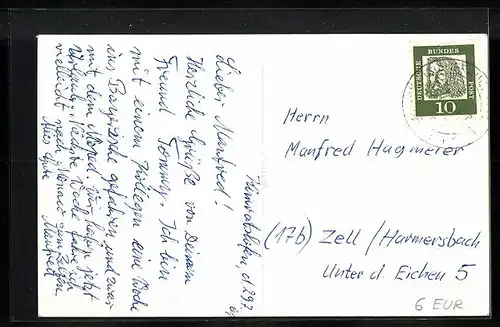 Lieber Manfred!
Herzliche Grüße von Deinem
Freund Tommy. Ich bin
mit einem Kollegen eine Woche
ins gefahren und zwar
mit dem Moped. Wir haben jetzt
Urlaub. Nächste Woche fahre ich
vielleicht nach Monaco zum Zelten.
Alles Gute
Manfred
DEUTSCHE
BUNDES
POST
10
Herrn
Manfred Hagmeier
(17b) Zell / Harmersbach
Unter d. Eichen 5
6 EUR